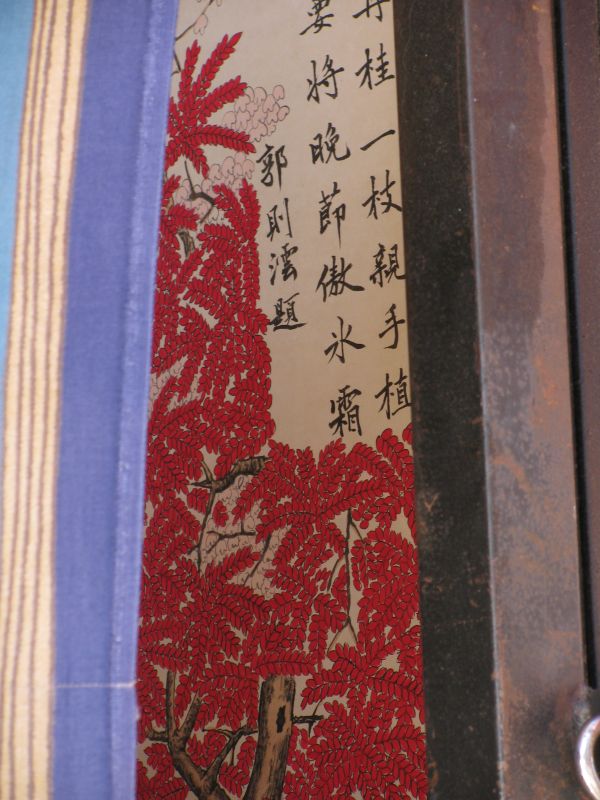 丹桂一枝親手植
要將晚節傲氷霜
郭則澐題